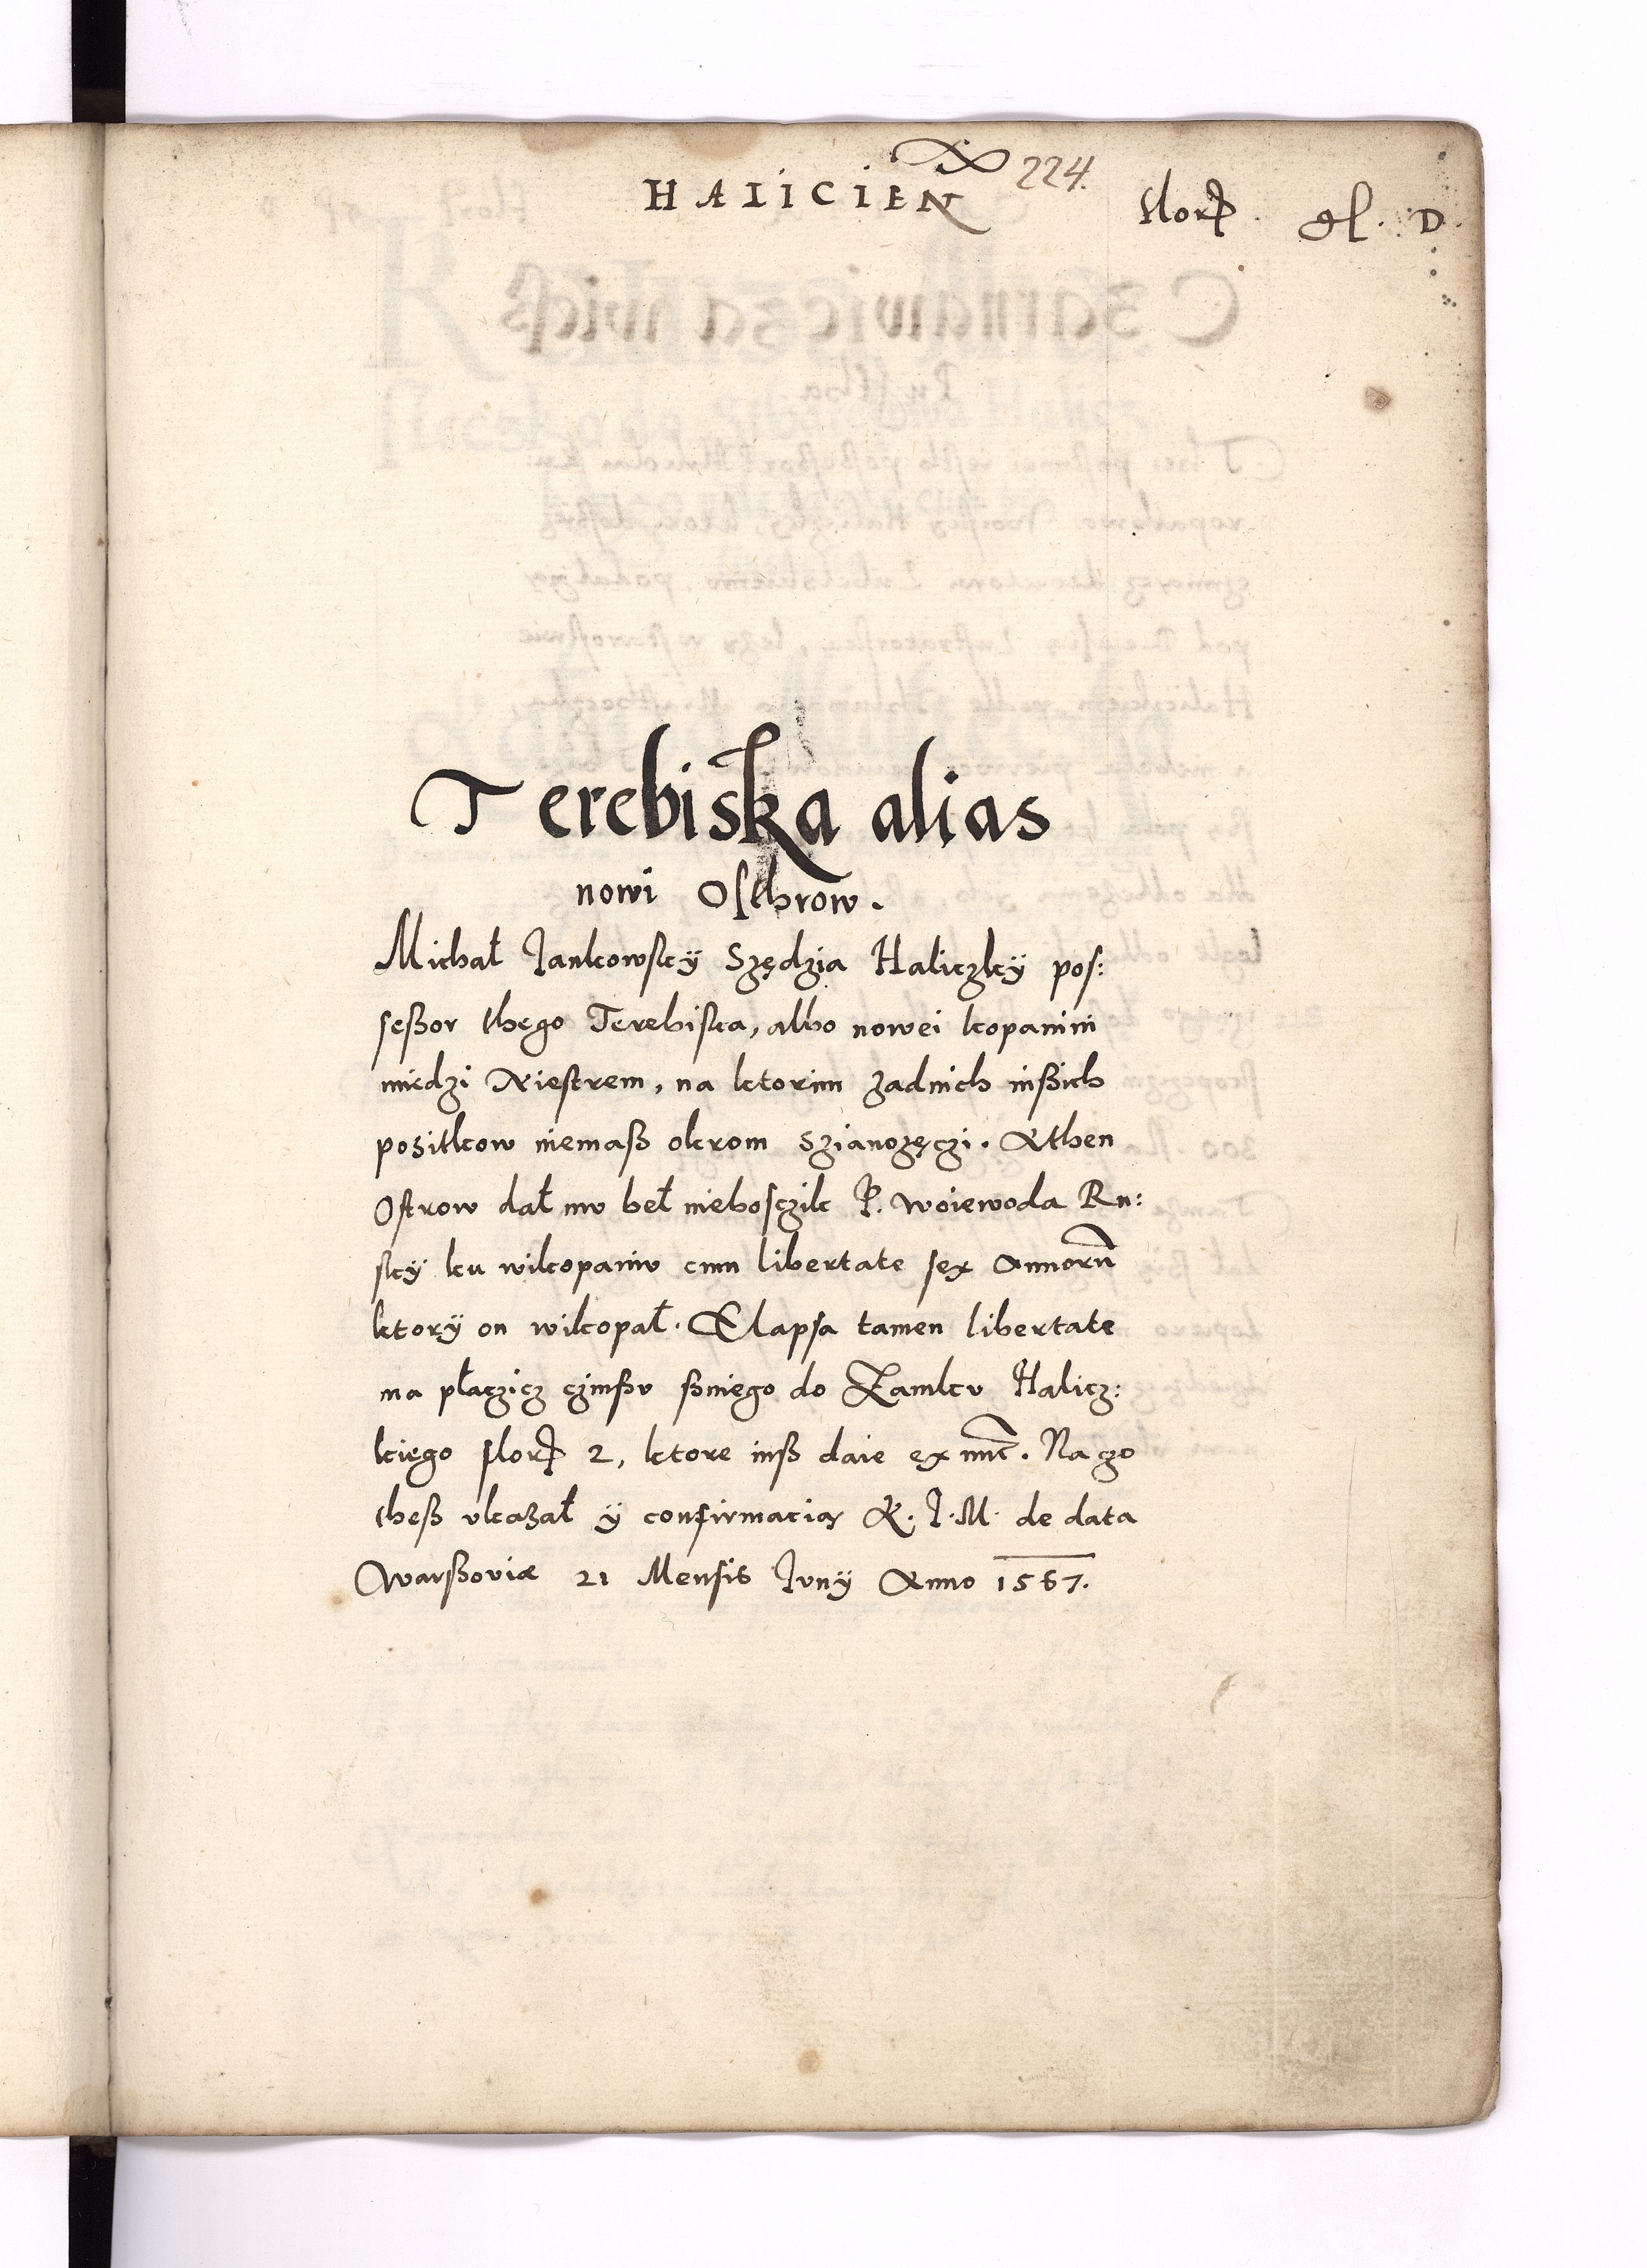 HALICIEN
224.
flor. gl. D.
Terebiska alias
nowi Osthrow.
Michał Jankowsky Szędzia Haliczky pos:
seßor thego Terebiska, albo nowei kopanini
miedzi Niestrem, na ktorim zadnich inßich
positkow niemaß okrom szianozęczi. A then
Ostrow dał mv beł niebosczik P. woiewoda Ru:
sky ku wikopaniv cum libertate sex Annorū
ktory on wikopał. Elapsa tamen libertate
ma płaczicz czinßv ßniego do Zamkv Halicz:
kiego flor. 2, ktore inß daie ex nūc. Na czo
theß vkazał ÿ confirmacią K. J. M. de data
Warßoviæ 21 Mensis Jvnÿ Anno 1567.